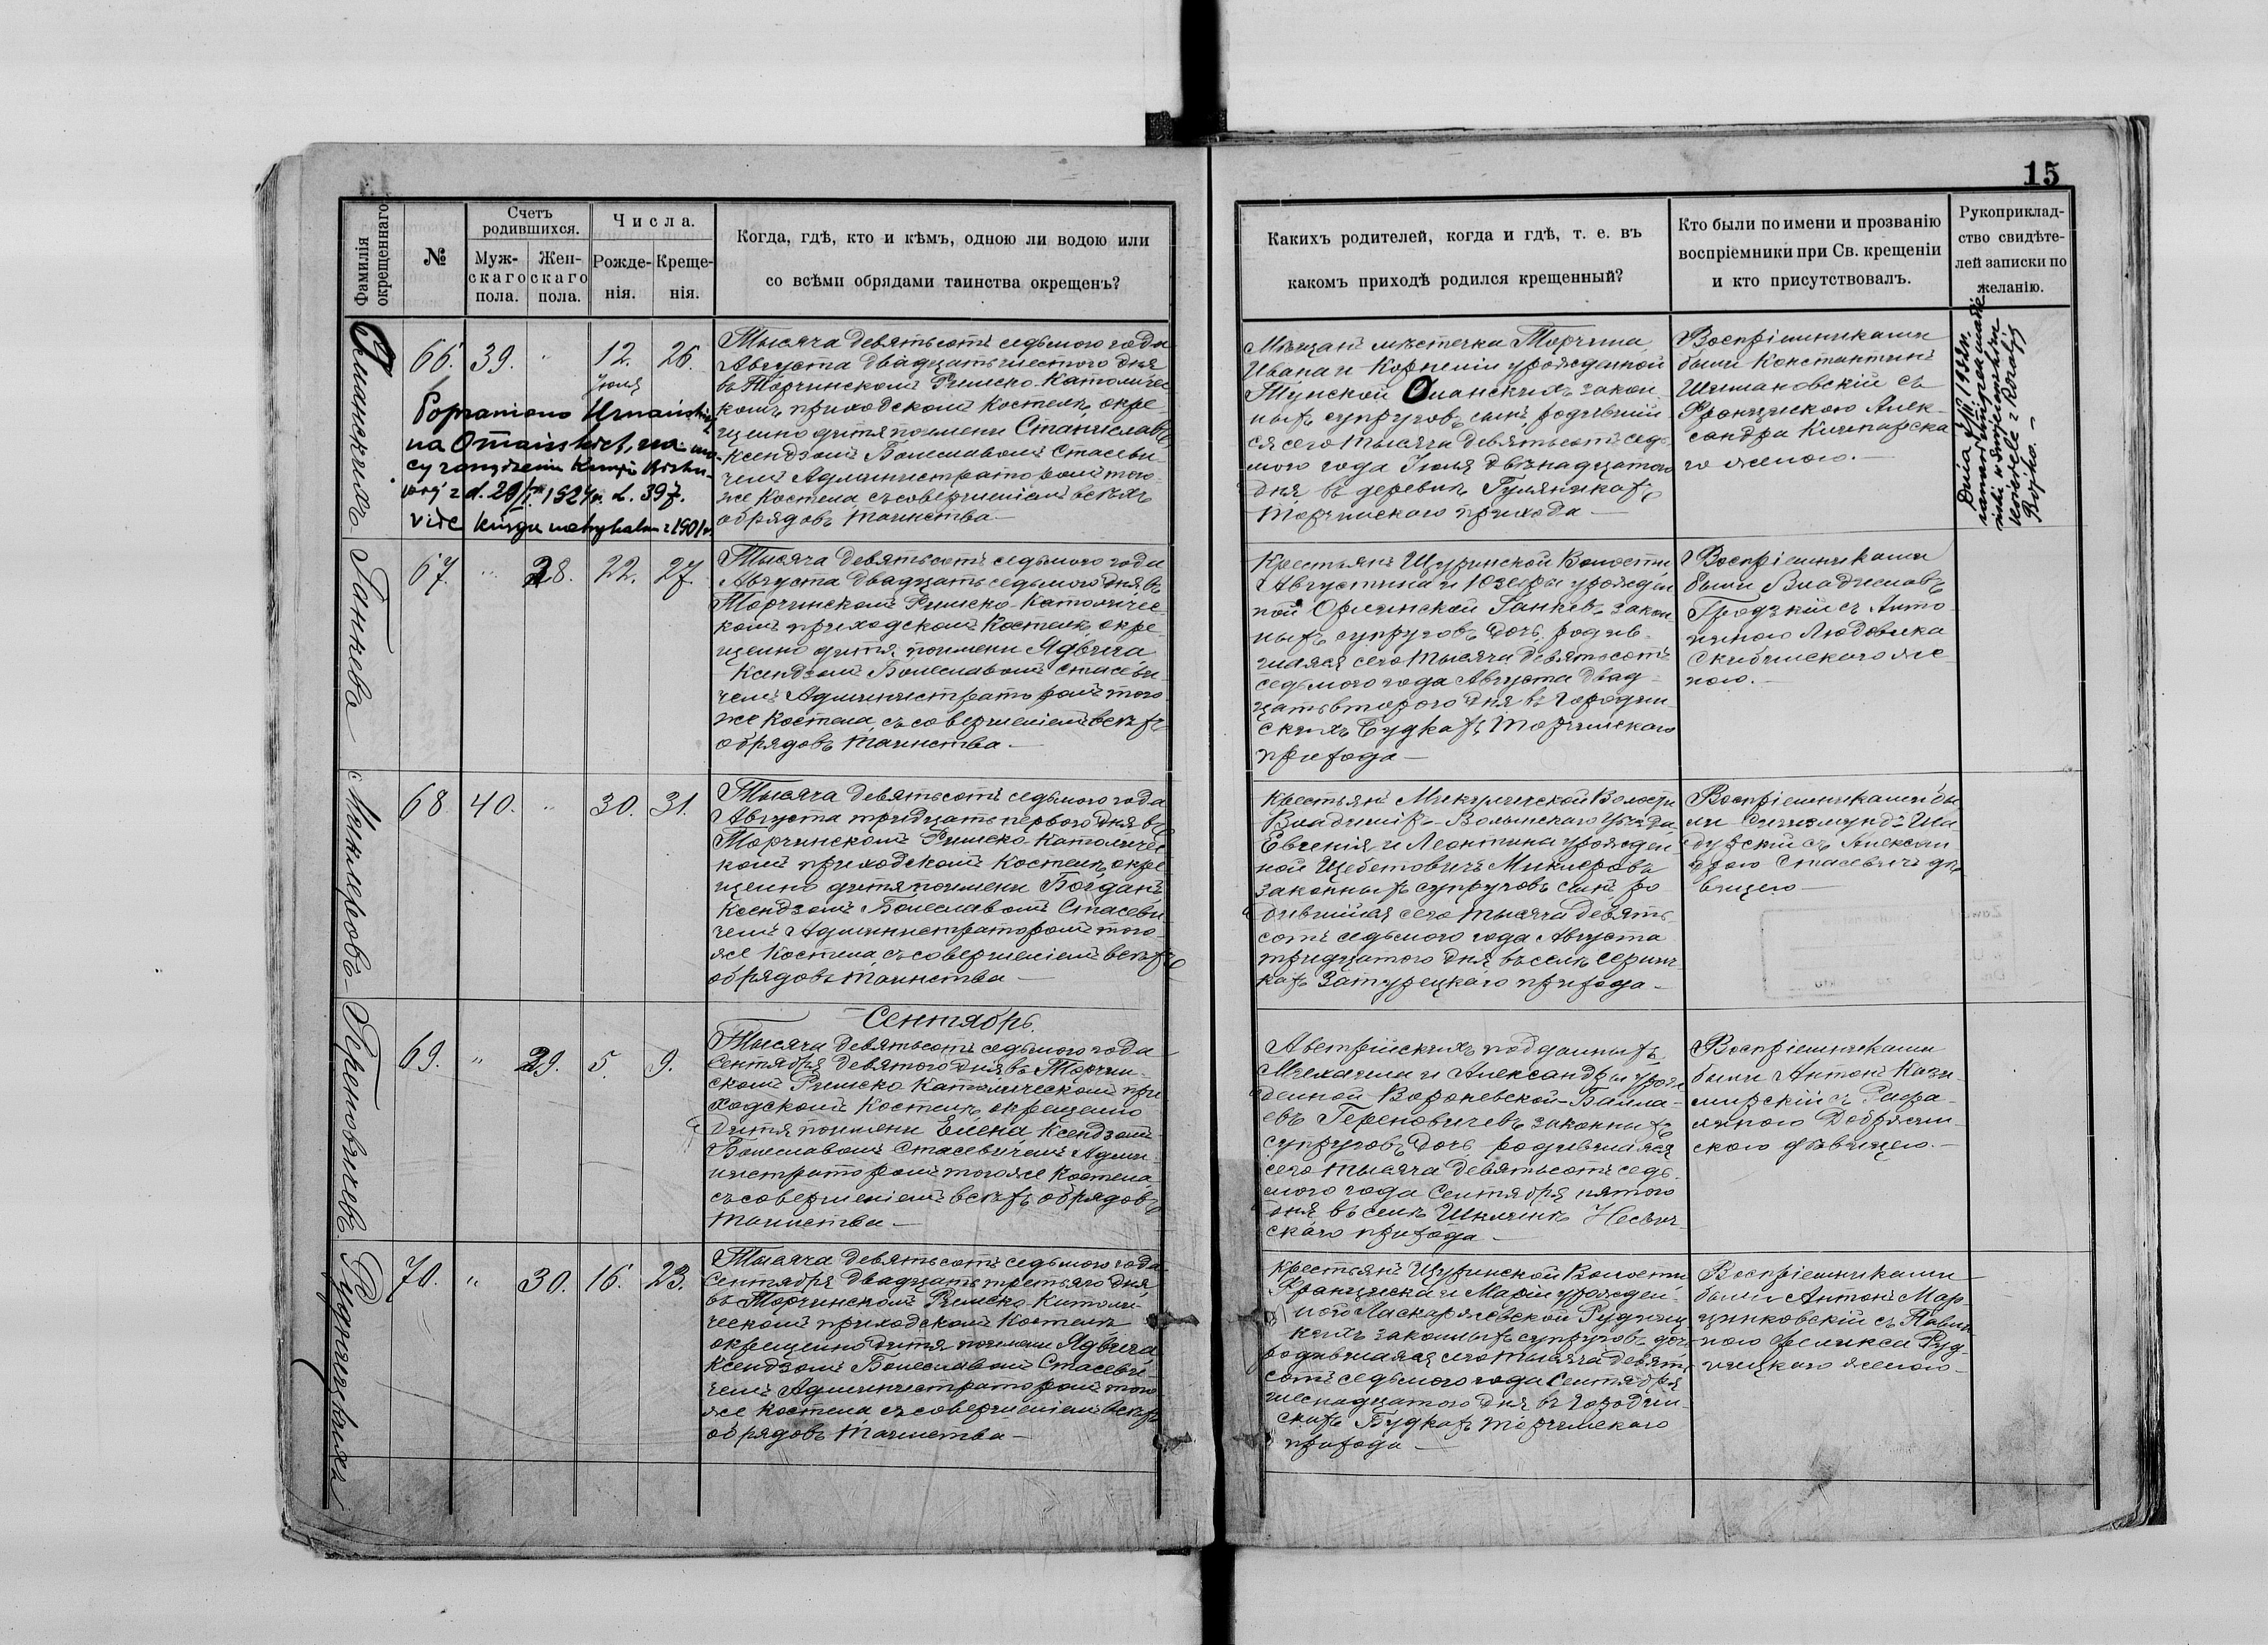 15
Фамилія
окрещеннаго.
№
Счетъ
родившихся.
Муж-
скаго
пола.
Жен-
скаго
пола.
Числа.
Рожде-
нія.
Креще-
нія.
Когда, гдѣ, кто и кѣмъ, одною ли водою или
со всѣми обрядами таинства окрещенъ?
Какихъ родителей, когда и гдѣ, т. е. въ
какомъ приходѣ родился крещенный?
Кто были по имени и прозванію
воспріемники при Св. крещеніи
и кто присутствовалъ.
Рукоприклад-
ство свидѣте-
лей записки по
желанію.
Оманскихъ
66. 39. " 12. 26.
Іюля
Poprawiono Umański
na Omański
zarządzenia Kurji
z d. 29/I 1924 r. L. 397.
vide księga 1901 r.
Тысяча девятьсотъ седьмого года
Августа двадцать шестого дня
въ Торчинскомъ Римско-Католичес-
комъ приходскомъ Костелѣ окре-
щено дитя по имени Станиславъ
Ксендзомъ Болеславомъ Стасеви-
чемъ Администраторомъ того-
же Костела, съ совершеніемъ всѣхъ
обрядовъ таинства—
Мѣщанъ мѣстечка Торчина
Ивана и Корнеліи урожденной
Тунской Оманскихъ закон-
ныхъ супруговъ сынъ, родивший-
ся сего тысяча девятьсотъ седь-
мого года Іюля двѣнадцатого
дня въ деревнѣ Гуляникахъ
Торчинскаго прихода—
Воспріемниками
были Константинъ
Шимановскій съ
Францискою Алек-
сандра
го женою.—
Dnia
Ганкевъ
67. " 28. 22. 27.
Тысяча девятьсотъ седьмого года
Августа двадцать седьмого дня въ
Торчинскомъ Римско-Католичес-
комъ приходскомъ Костелѣ окре-
щено дитя по имени Ядвига
Ксендзомъ Болеславомъ Стасеви-
чемъ Администраторомъ того
же Костела, съ совершеніемъ всѣхъ
обрядовъ таинства.—
Крестьянъ Щуринской Волости
Августина и Юзефы урожден
ной Орлинской Ганкевъ закон
ныхъ супруговъ дочь, родив-
шаяся сего тысяча девятьсотъ
седьмого года Августа двад-
цать второго дня въ Городин-
скихъ Будкахъ Торчинскаго
прихода—
Воспріемниками
были Владиславъ
Гродзкій съ Анто-
ниною Людовика
Скибинскаго же-
ною.—
Миклеровъ
68. 40. " 30. 31.
Тысяча девятьсотъ седьмого года
Августа тридцать перваго дня въ
Торчинскомъ Римско-Католичес
комъ приходскомъ Костелѣ окре-
щено дитя по имени Богданъ
Ксендзомъ Болеславомъ Стасеви-
чемъ Администраторомъ того-
же Костела, съ совершеніемъ всѣхъ
обрядовъ таинства—
Крестьянъ Микуличской Волости
Владиміръ-Волынскаго Уѣзда
Евгенія и Леонтины урожден-
ной Щебетовичъ Миклеровъ
законныхъ супруговъ сынъ ро-
дившійся сего тысяча девять
сотъ седьмого года Августа
тридцатого дня въ селѣ
кахъ Затурецкаго прихода—
Воспріемниками бы
ли Сигизмундъ
съ Алексан
дрою Стасевичъ дѣ
вицею—
Гереновичевъ
Сентябрь.
69. " 29. 5. 9.
Тысяча девятьсотъ седьмого года
Сентября девятого дня въ Торчин-
скомъ Римско Католическомъ при
ходскомъ Костелѣ окрещено
дитя по имени Елена Ксендзомъ
Болеславомъ Стасевичемъ Адми
нистраторомъ того же Костела,
съ совершеніемъ всѣхъ обрядовъ
таинства—
Австрійскихъ подданныхъ
Михаила и Александры урож
денной
евъ Гереновичевъ законныхъ
супруговъ дочь родившаяся
сего тысяча девятьсотъ седь-
мого года Сентября пятого
дня въ селѣ
скаго прихода—
Воспріемниками
были Антонъ Кази
мирскій съ
ною
скою дѣвицею.—
Рудницкихъ
70. " 30. 16. 23.
Тысяча девятьсотъ седьмого года
Сентября двадцать третьяго дня
въ Торчинскомъ Римско Католи-
ческомъ приходскомъ Костелѣ
окрещено дитя по имени Ядвига
Ксендзомъ Болеславомъ Стасеви-
чемъ Администраторомъ того-
же Костела съ совершеніемъ всѣхъ
обрядовъ таинства—
Крестьянъ Щуринской Волости
Франциска и Маріи урожден-
ной Рудниц-
кихъ законныхъ супруговъ дочь
родившаяся сего тысяча девять
сотъ седьмого года Сентября
шеснадцатого дня въ Городин-
скихъ Будкахъ Торчинскаго
прихода—
Воспріемниками
были Антонъ Мар-
цинковскій съ
ною Феликса Руд-
ницкаго женою—